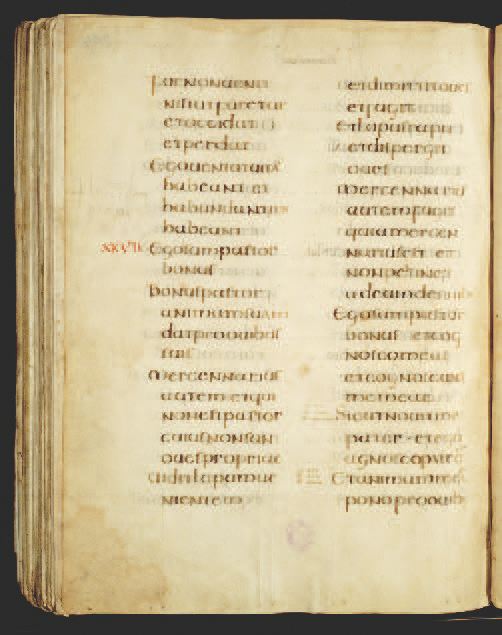 furnonuenit
nisiutfuretur
etoccidat
etperdat
Egoueniutuitā
habeant et
habundantius
habeant
XXVII Egosumpastor
bonus
bonuspastor
animamsuam
datproouibus
suis
Mercennarius
autem etqui
nonestpastor
cuiusnonsunt
ouespropriae
uidetlupumue
nientem
etdimittitoues
etfugit
Etlupusrapit
etdispergit
oues
Mercennarius
autemfugit
quiamercen
nariusest et
nonpertinet
adeumdeouib
Egosumpastor
bonus etcog
noscomeas
etcognoscunt
memeae
Sicutnouitme
pater · etego
agnoscopatrē
Etanimammeā
ponoproouib